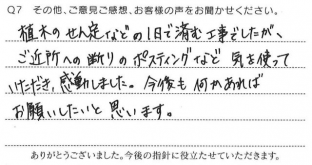 Q7 その他、ご意見ご感想、お客様の声をお聞かせください。
植木のせん定などの1日で済む工事でしたが、
ご近所への断りのポスティングなど 気を使って
いただき、感動しました。今後も何かあれば
お願いしたいと思います。
ありがとうございました。今後の指針に役立たせていただきます。